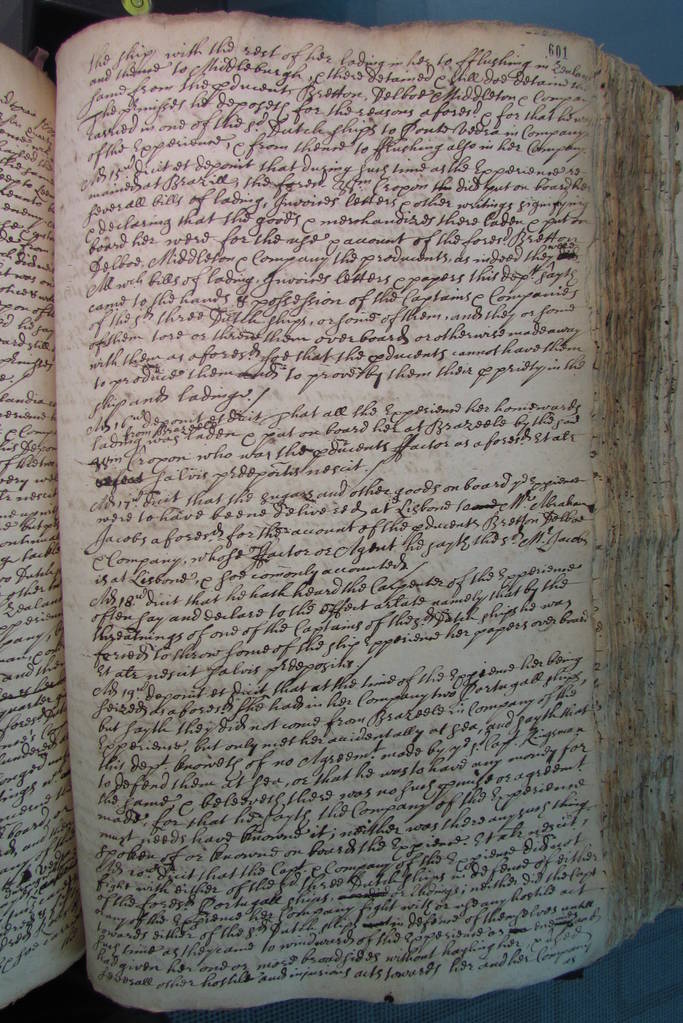 601
the ship with the rest of her lading in her to fflushing in Zealand
and thence to Middleburgh, & there detained & still doe detaine the
same from the producents Bretton, Delboe Middleton & Company
The premisses he deposeth for the reasons aforesd & for that he was
carried in one of the sd Dutch ships to Ponte Vedra in Company
of the Experience, & from thence to fflushing also in her Company
Ad 15um dicit et deponit that during such time as the Experience re
mained at Brazill, the foresd Wm Cropon did put on board her
severall bills of lading, Invoices letters & other writings signifying
& declaring that the goods & merchandizes there laden & put on
board her were for the use & account of the foresd Bretton
Delboe, Middleton & Company the producents, as indeed they were
All wch bills of lading, Invoices letters & papers this dept sayth
came to the hands & possession of the Captaines & Companies
of the sd three Dutch ships, or some of them, and they or some
of them tore or threw them over board or otherwise made away
with them as aforesd soe that the producents cannot have them
to produce them to prove by them their propriety in the
ship and lading /
Ad 16um deponit et dicit That all the Experience her homewards
lading from Brazeele was laden & put on board her at Brazeele by the sd
Wm Cropon who was the producents ffactor as aforesd Et alr
salvis predepositis nescit /
Ad 17um dicit that the sugars and other goods on board ye Experience
were to have beene delivered at Lisbone to Mr Abraham
Jacobs aforesd for the account of the producents Bretton Delboe
& Company, whose ffactor or Agent he sayth the sd Mr Jacobs
is at Lisbone, & soe comonly accounted /
Ad 18um dicit that he hath heard the Carpenter of the Experience
often say and declare to the effect arlate namely that by the
threatnings of one of the Captaines of the sd Dutch ships he was
forced to throw some of the ship Experience her papers over board
Et alr nescit salvis predepositis /
Ad 19um deponit et dicit that at the time of the Experience her being
seized as aforesd she had in her Company two Portugall ships,
but sayth they did not come from Brazeele in Company of the
Experience, but only met her accidentally at sea, and sayth that
this dept knoweth of no Agreemt made by ye sd Capt Kingman
to defend them at sea, or that he was to have any money for
the same & beleeveth there was no such promise or agreemt
made, for that he sayth the Company of the Experience
must needs have knowne it; neither was there any such thing
spoken of or knowne on board the Experience Et alr nescit,
Ad 20um dicit that the Capt & Company of the Experience did not
fight with either of the sd three Dutch ships in defence of either
of the foresd Portugall ships, or ladings; neither did the Capt
or any of the Experience her Company fight with or use any hostile act
towards either of the sd Dutch ships in defence of themselves untill
such time as they came to windward of the Experience
had given her one or more broad sides without hayling her, & used
severall other hostile and injurious acts towards her and her Company
as